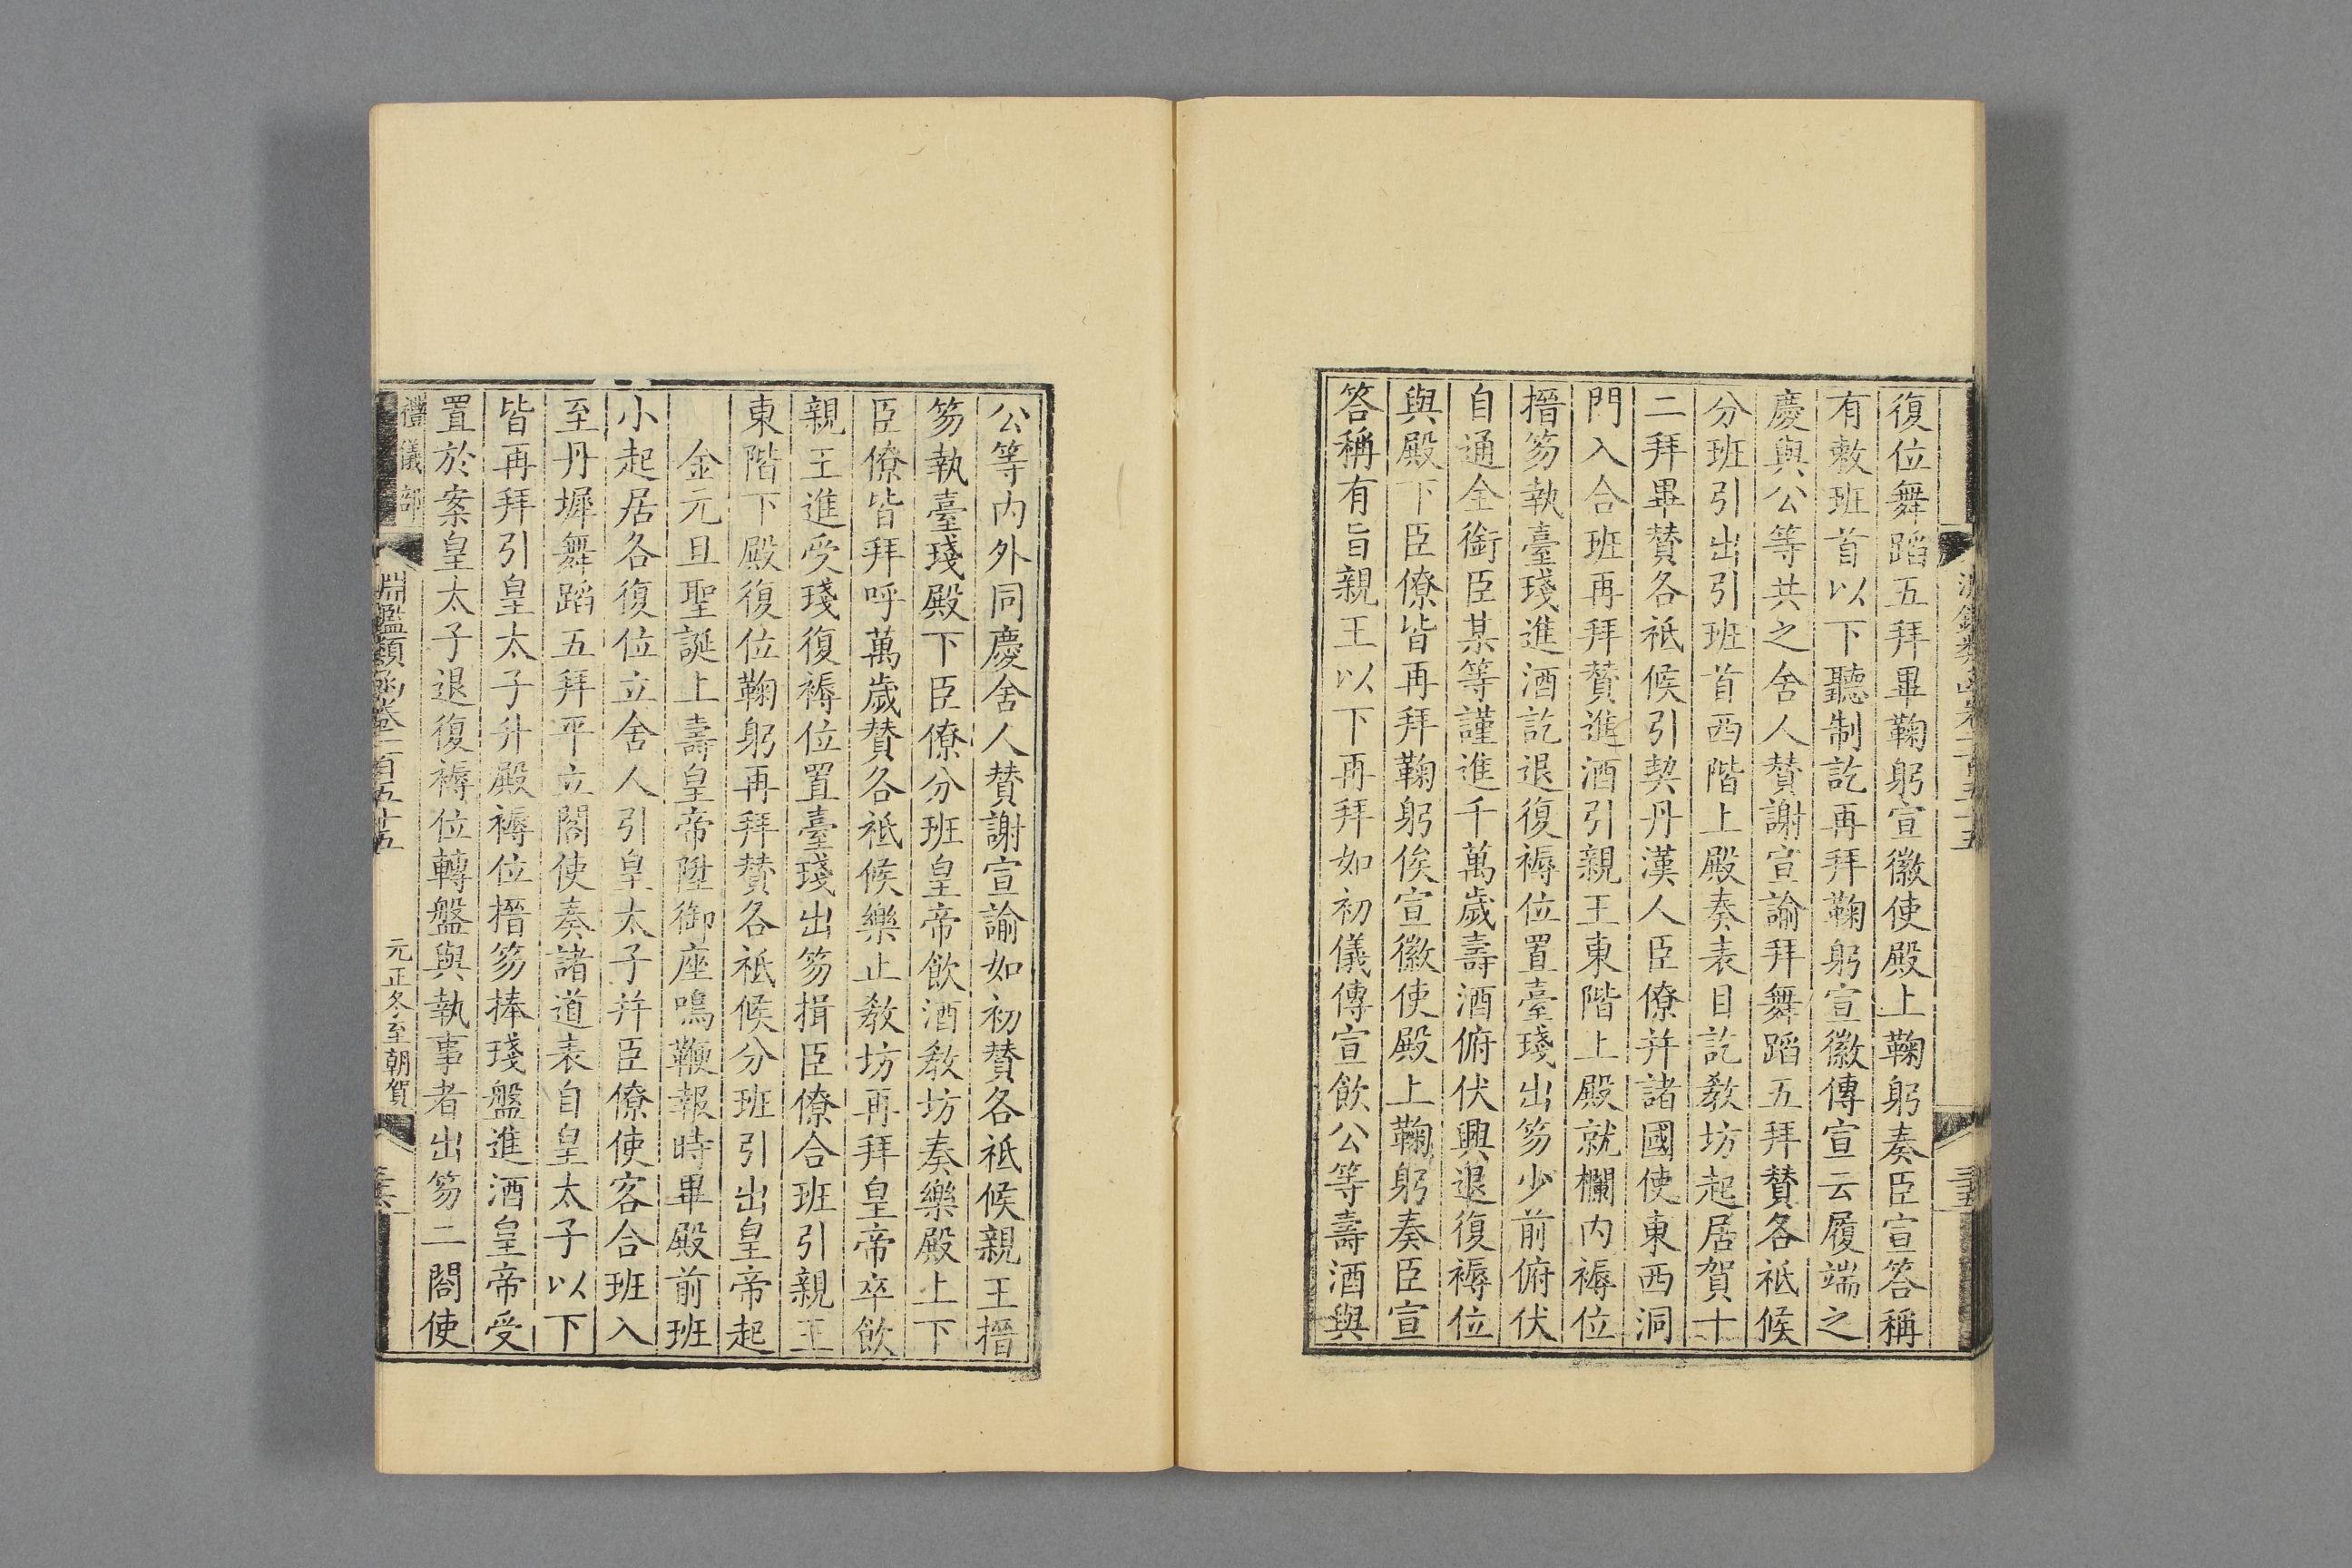 復位舞蹈五拜畢鞠躬宣徽使殿上鞠躬奏臣宣答稱
有敕班首以下聽制訖再拜鞠躬宣徽傳宣云履端之
慶與公等共之舍人贊謝宣諭拜舞蹈五拜贊各祗候
分班引出引班首西階上殿奏表目訖教坊起居賀十
二拜畢贊各祗候引契丹漢人臣僚并諸國使東西洞
門入合班再拜贊進酒引親王東階上殿就欄內褥位
搢笏執臺琖進酒訖退復褥位置臺琖出笏少前俯伏
自通全銜臣某等謹進千萬歲壽酒俯伏興退復褥位
與殿下臣僚皆再拜鞠躬俟宣徽使殿上鞠躬奏臣宣
答稱有旨親王以下再拜如初儀傳宣飲公等壽酒與
公等內外同慶舍人贊謝宣諭如初贊各祗候親王搢
笏執臺琖殿下臣僚分班皇帝飲酒教坊奏樂殿上下
臣僚皆拜呼萬歲贊各祗候樂止教坊再拜皇帝卒飲
親王進受琖復褥位置臺琖出笏揖臣僚合班引親王
東階下殿復位鞠躬再拜贊各祗候分班引出皇帝起
金元旦聖誕上壽皇帝陞御座鳴鞭報時畢殿前班
小起居各復位立舍人引皇太子并臣僚使客合班入
至丹墀舞蹈五拜平立閤使奏諸道表自皇太子以下
皆再拜引皇太子升殿褥位搢笏捧琖盤進酒皇帝受
置於案皇太子退復褥位轉盤與執事者出笏二閤使
禮儀部 淵鑑類函卷一百五十五 元正冬至朝賀